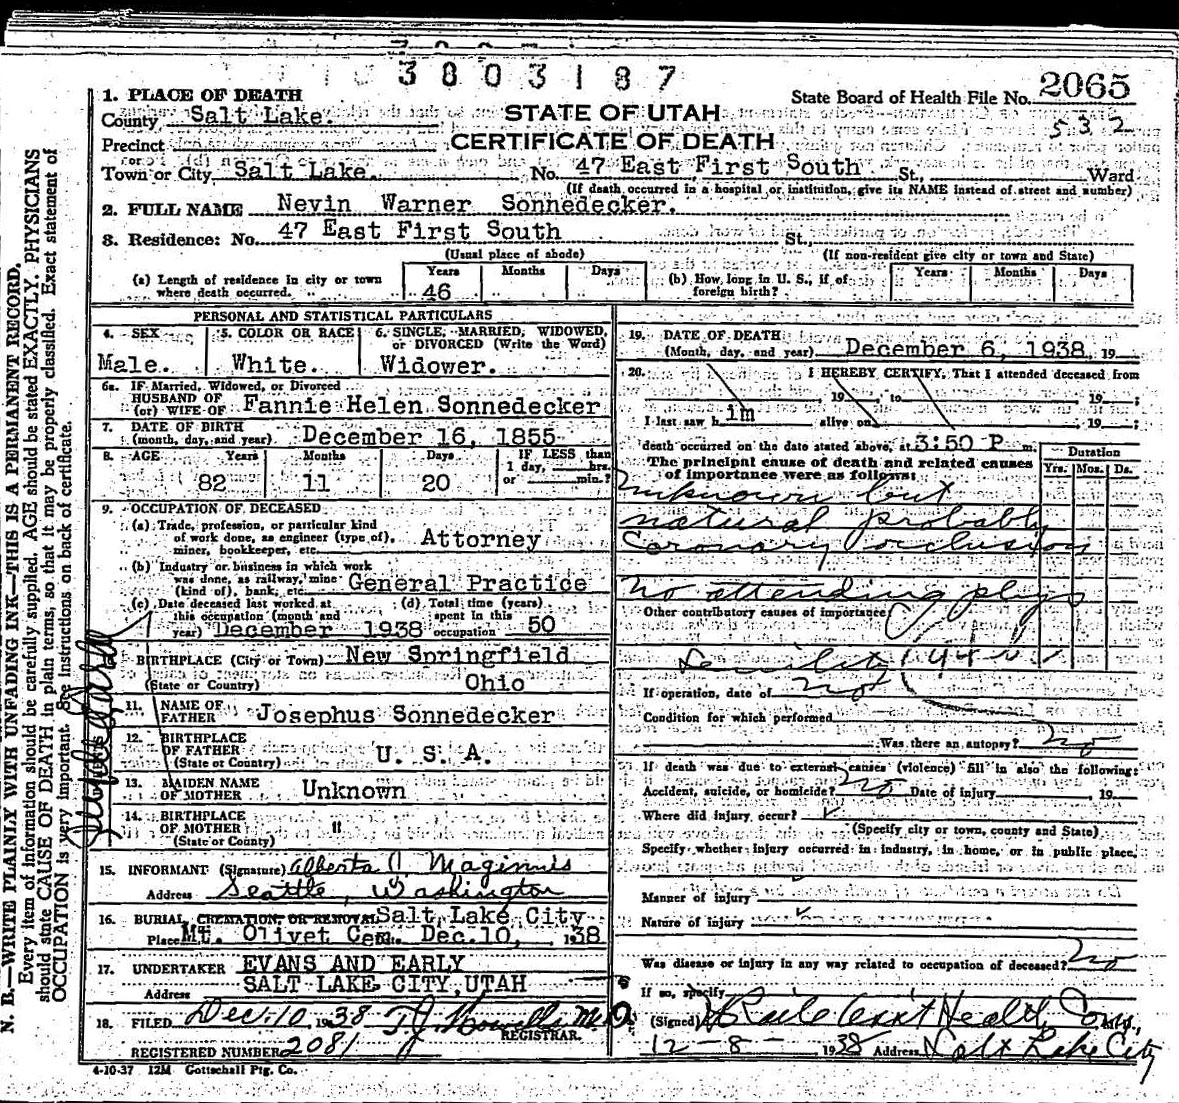 3803187
2065
State Board of Health File No.
532
1. PLACE OF DEATH
County Salt Lake.
STATE OF UTAH
CERTIFICATE OF DEATH
Precinct
or
Town or City Salt Lake. No. 47 East First South St., Ward
(If death occurred in a hospital or institution, give its NAME instead of street and number)
2. FULL NAME Nevin Warner Sonnedecker.
3. Residence: No. 47 East First South St.,
(Usual place of abode) (If non-resident give city or town and State)
(a) Length of residence in city or town where death occurred. Years 46 Months Days
(b) How long in U. S., if of foreign birth? Years Months Days
PERSONAL AND STATISTICAL PARTICULARS
4. SEX Male.
5. COLOR OR RACE White.
6. SINGLE, MARRIED, WIDOWED, or DIVORCED (Write the Word) Widower.
6a. IF Married, Widowed, or Divorced
HUSBAND OF
(or) WIFE OF Fannie Helen Sonnedecker
7. DATE OF BIRTH
(month, day, and year) December 16, 1855
8. AGE Years Months Days IF LESS than
1 day, hrs.
82 11 20 or min.?
9. OCCUPATION OF DECEASED
(a) Trade, profession, or particular kind
of work done, as engineer (type of),
miner, bookkeeper, etc. Attorney
(b) Industry or business in which work
was done, as railway, mine
(kind of), bank, etc. General Practice
(c) Date deceased last worked at
this occupation (month and
year) December 1938
(d) Total time (years)
spent in this
occupation 50
BIRTHPLACE (City or Town) New Springfield
(State or Country) Ohio
11. NAME OF
FATHER Josephus Sonnedecker
12. BIRTHPLACE
OF FATHER
(State or Country) U. S. A.
13. MAIDEN NAME
OF MOTHER Unknown
14. BIRTHPLACE
OF MOTHER "
(State or County)
15. INFORMANT (Signature) Alberta C. Maginnis
Address Seattle, Washington
16. BURIAL, CREMATION, OR REMOVAL Salt Lake City
Place Mt. Olivet Cem. Dec. 10, 1938
17. UNDERTAKER EVANS AND EARLY
Address SALT LAKE CITY, UTAH
18. FILED Dec. 10 1938 M.D.
REGISTRAR.
REGISTERED NUMBER 2081
4-10-37 12M Gottschall Ptg. Co.
19. DATE OF DEATH
(Month, day, and year) December 6, 1938 19
20. I HEREBY CERTIFY, That I attended deceased from
19 , to 19 ;
I last saw h im alive on 19 ;
death occurred on the date stated above, at 3:50 P m.
The principal cause of death and related causes
of importance were as follows:
Duration
Yrs. Mos. Ds.
Unknown but
natural probably
Coronary occlusion
No attending phys
Other contributory causes of importance:
Senility
If operation, date of no
Condition for which performed
Was there an autopsy? no
If death was due to external causes (violence) fill in also the following:
Accident, suicide, or homicide? no Date of injury 19
Where did injury occur?
(Specify city or town, county and State)
Specify whether injury occurred in industry, in home, or in public place,
Manner of injury
Nature of injury
Was disease or injury in any way related to occupation of deceased? no
If so, specify
(Signed) Health Com.,
12-8- 1938 Address Salt Lake City
N. B.—WRITE PLAINLY WITH UNFADING INK—THIS IS A PERMANENT RECORD.
Every item of information should be carefully supplied. AGE should be stated EXACTLY. PHYSICIANS
should state CAUSE OF DEATH in plain terms, so that it may be properly classified. Exact statement of
OCCUPATION is very important. See instructions on back of certificate.